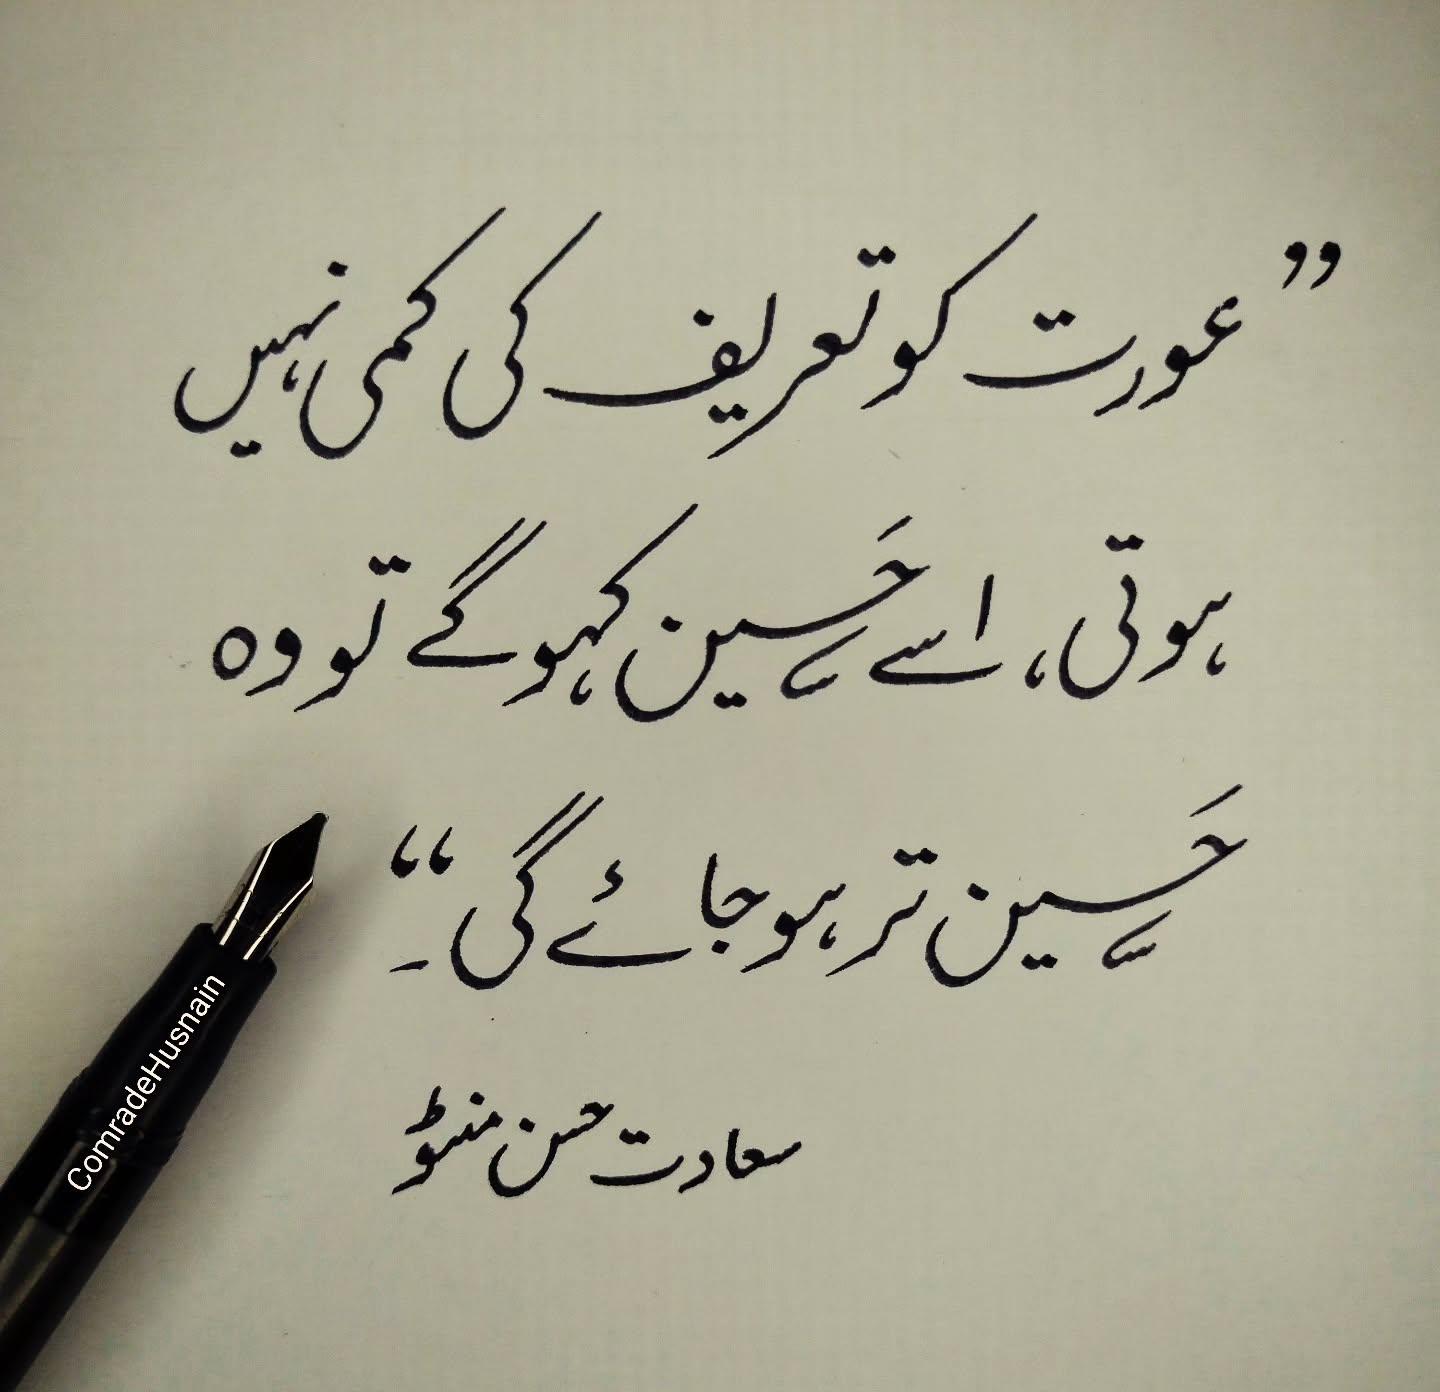 ”عورت کو تعریف کی کمی نہیں
ہوتی، اسے حَسین کہو گے تو وہ
حَسین تر ہو جائے گی“۔
سعادت حسن منٹو
ComradeHusnain